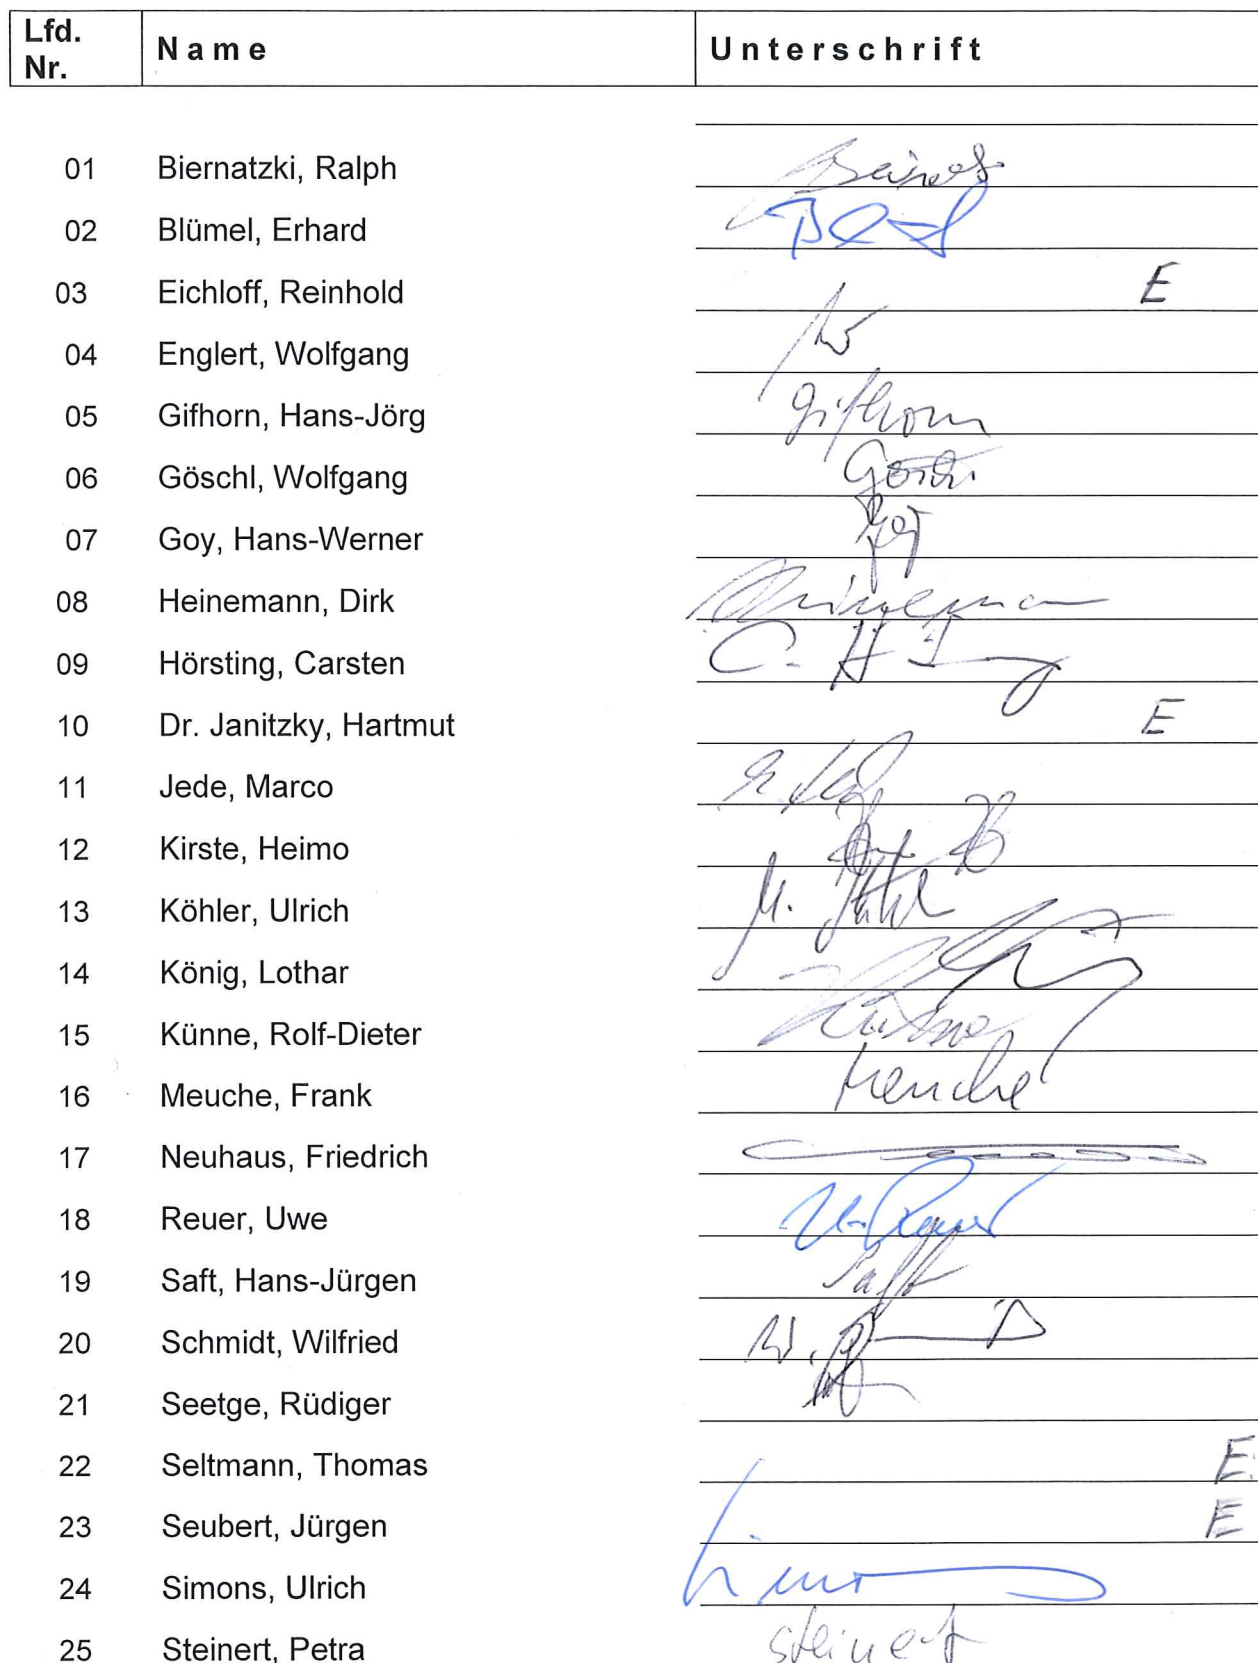 Lfd. Nr. Name Unterschrift
01 Biernatzki, Ralph
02 Blümel, Erhard
03 Eichloff, Reinhold E
04 Englert, Wolfgang
05 Gifhorn, Hans-Jörg Gifhorn
06 Göschl, Wolfgang
07 Goy, Hans-Werner Goy
08 Heinemann, Dirk
09 Hörsting, Carsten
10 Dr. Janitzky, Hartmut E
11 Jede, Marco
12 Kirste, Heimo
13 Köhler, Ulrich
14 König, Lothar
15 Künne, Rolf-Dieter
16 Meuche, Frank Meuche
17 Neuhaus, Friedrich
18 Reuer, Uwe
19 Saft, Hans-Jürgen Saft
20 Schmidt, Wilfried
21 Seetge, Rüdiger
22 Seltmann, Thomas E
23 Seubert, Jürgen E
24 Simons, Ulrich
25 Steinert, Petra Steinert